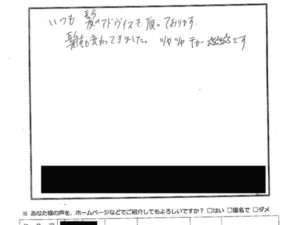 いつも アドヴイスを 頂いております。
髪も変わってきました。 ツヤツヤ です
※ あなた様の声を、ホームページなどでご紹介してもよろしいですか? □はい □匿名で □ダメ